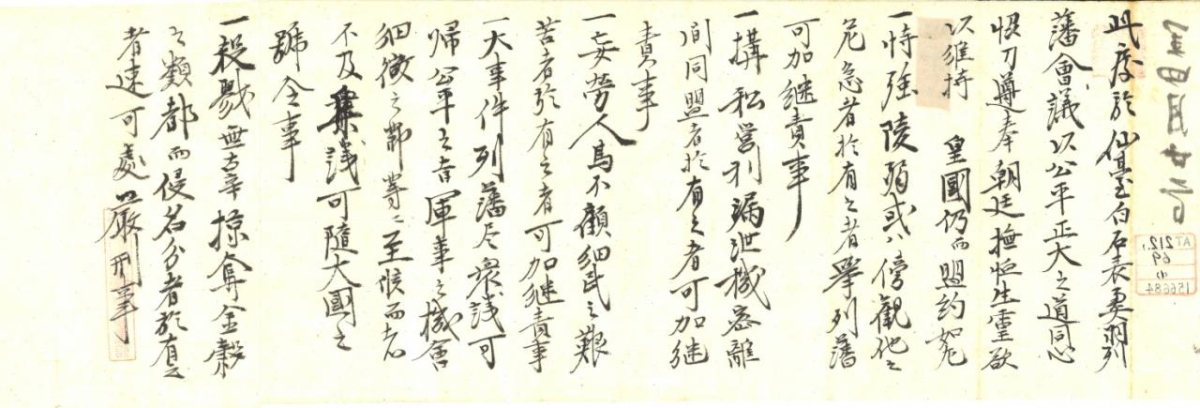 此度於仙臺白石表奥羽列
藩會議以公平正大之道同心
恊力遵奉 朝廷撫恤生霊欲
以維持 皇國仍而盟約如左
一恃強陵弱或ハ傍観他之
危急者於有之者挙列藩
可加継責事
一搆私営利漏泄機密離
間同盟者於有之者可加継
責事
一妄労人馬不顧細民之艱
苦者於有之者可加継責事
一大事件列藩尽衆議可
帰公平之旨軍事之機會
細微之節等ニ至候而者
不及衆議可隨大國之
號令事
一殺戮無辜掠奪金穀
之類都而侵名分者於有之
者速可處厳刑事